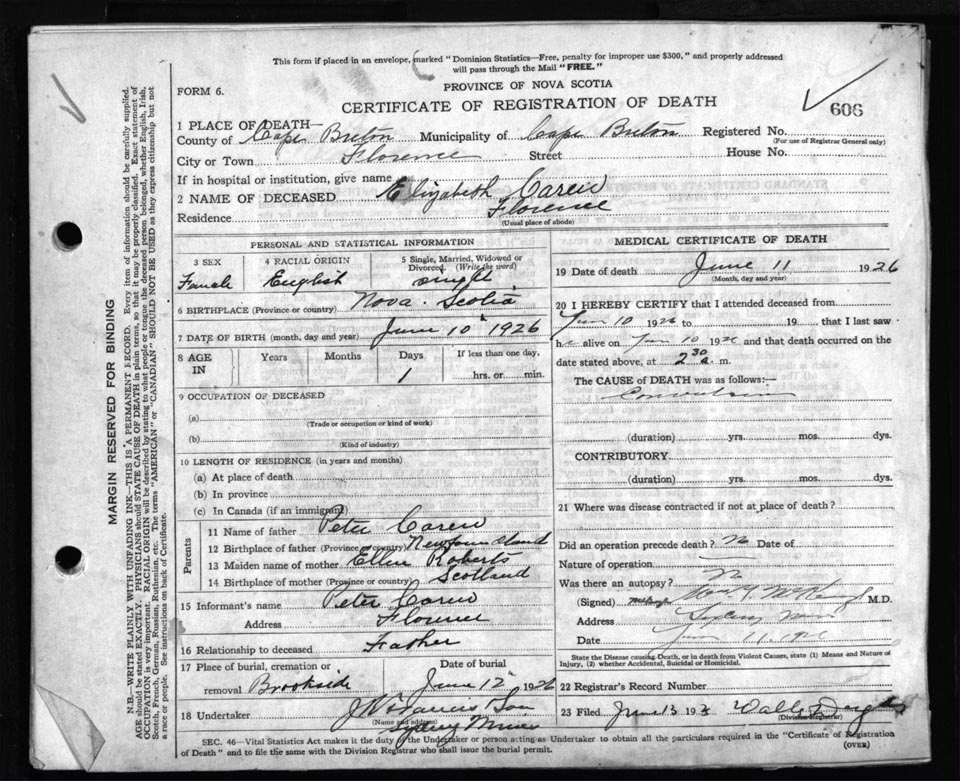 This form if placed in an envelope, marked "Dominion Statistics—Free, penalty for improper use $300," and properly addressed
will pass through the Mail "FREE."
FORM 6.
PROVINCE OF NOVA SCOTIA
CERTIFICATE OF REGISTRATION OF DEATH
606
1 PLACE OF DEATH—
County of Cape Breton Municipality of Cape Breton Registered No.
(For use of Registrar General only)
City or Town Florence Street House No.
If in hospital or institution, give name
2 NAME OF DECEASED Elizabeth Carew
Residence Florence
(Usual place of abode)
PERSONAL AND STATISTICAL INFORMATION
3 SEX Female
4 RACIAL ORIGIN English
5 Single, Married, Widowed or Divorced. (Write the word) single
6 BIRTHPLACE (Province or country) Nova Scotia
7 DATE OF BIRTH (month, day and year) June 10 1926
8 AGE IN Years Months Days 1 If less than one day, hrs. or min.
9 OCCUPATION OF DECEASED
(a)
(Trade or occupation or kind of work)
(b)
(Kind of industry)
10 LENGTH OF RESIDENCE (in years and months)
(a) At place of death
(b) In province
(c) In Canada (if an immigrant)
Parents
11 Name of father Peter Carew
12 Birthplace of father (Province or country) Newfoundland
13 Maiden name of mother Ellen Roberts
14 Birthplace of mother (Province or country) Scotland
15 Informant's name Peter Carew
Address Florence
16 Relationship to deceased Father
17 Place of burial, cremation or removal Brookside
Date of burial June 12 1926
18 Undertaker
(Name and address)
Sydney Mines
MEDICAL CERTIFICATE OF DEATH
19 Date of death June 11 1926
(Month, day and year)
20 I HEREBY CERTIFY that I attended deceased from
Jun 10 1926 to 19 that I last saw
h alive on Jun 10 1926 and that death occurred on the
date stated above, at 2 30 a. m.
The CAUSE of DEATH was as follows:—
(duration) yrs. mos. dys.
CONTRIBUTORY.
(duration) yrs. mos. dys.
21 Where was disease contracted if not at place of death?
Did an operation precede death? No Date of
Nature of operation
Was there an autopsy? No
(Signed) M.D.
Address Sydney Mines
Date Jun 11 1926
State the Disease causing Death, or in death from Violent Causes, state (1) Means and Nature of
Injury, (2) whether Accidental, Suicidal or Homicidal.
22 Registrar's Record Number
23 Filed June 13 192
(Division Registrar)
SEC. 46—Vital Statistics Act makes it the duty of the Undertaker or person acting as Undertaker to obtain all the particulars required in the "Certificate of Registration
of Death" and to file the same with the Division Registrar who shall issue the burial permit.
(OVER)
MARGIN RESERVED FOR BINDING
N.B.—WRITE PLAINLY WITH UNFADING INK—THIS IS A PERMANENT RECORD. Every item of information should be carefully supplied.
AGE should be stated EXACTLY. PHYSICIANS should STATE CAUSE OF DEATH in plain terms, so that it may be properly classified. Exact statement of
OCCUPATION is very important. RACIAL ORIGIN will be described by stating to what people or tongue the deceased person belonged, whether English, Irish,
Scotch, French, German, Russian, Ruthenian, etc. The terms "AMERICAN" or "CANADIAN" SHOULD NOT BE USED as they express citizenship but not
a race or people. See instructions on back of Certificate.